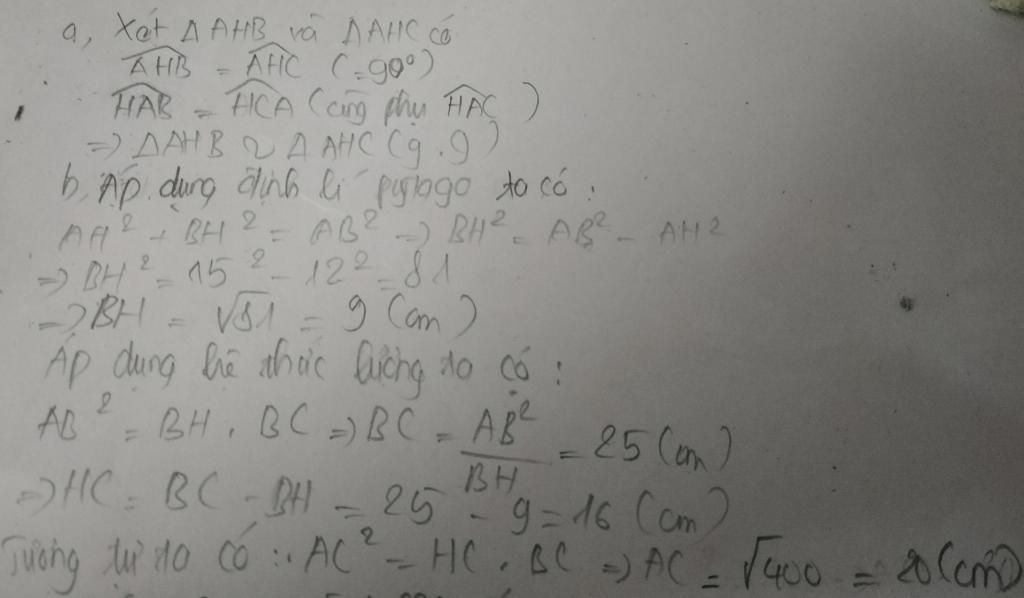 a, Xét Δ AHB và ΔAHC có
\widehat{AHB} = \widehat{AHC} (=90°)
\widehat{HAB} = \widehat{HCA} (cùng phụ \widehat{HAC})
=> ΔAHB ~ Δ AHC (g.g)
b, Áp dụng định lí pytago ta có :
AH² + BH² = AB² => BH² = AB² - AH²
=> BH² = 15² - 12² = 81
=> BH = √81 = 9 (cm)
Áp dụng hệ thức lượng ta có :
AB² = BH . BC => BC = \frac{AB²}{BH} = 25 (cm)
=> HC = BC - BH = 25 - 9 = 16 (cm)
Tương tự ta có : AC² = HC . BC => AC = √400 = 20 (cm)